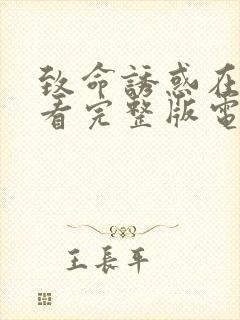 致命誘惑在
看完整版電
王長平